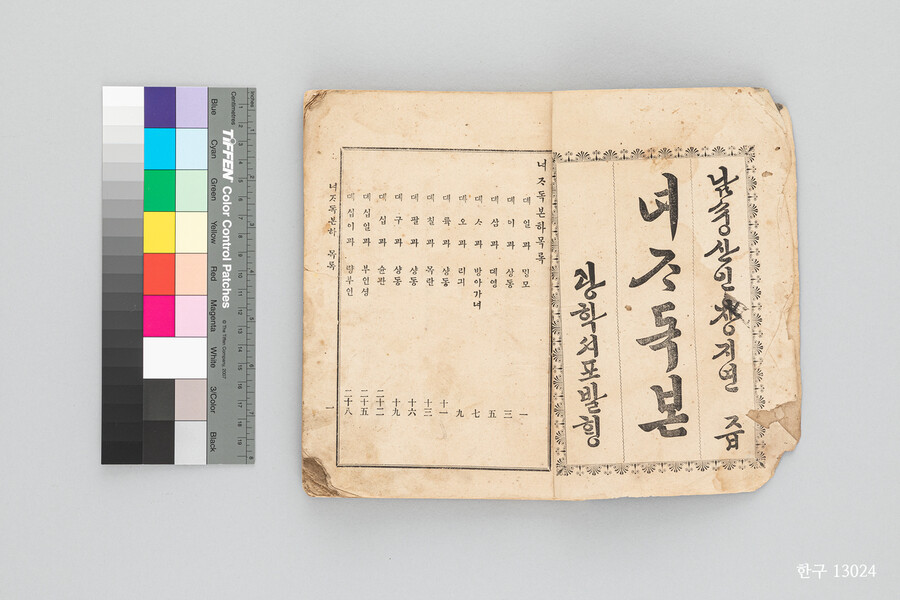 남숭산인 장지연 즙
녀ᄌᆞ독본
광학셔포발ᄒᆡᆼ
녀ᄌᆞ독본하목록
뎨일과 ᄆᆡᆼ모 一
뎨이과 상동 三
뎨삼과 뎨영 五
뎨ᄉᆞ과 방아가녀 七
뎨오과 리긔 九
뎨륙과 샹동 十一
뎨칠과 목란 十三
뎨팔과 샹동 十六
뎨구과 샹동 十九
뎨십과 슌관 二十二
뎨십일과 부인셩 二十五
뎨십이과 량부인 二十八
녀ᄌᆞ독본하 목록 一
Blue
Cyan
Green
Yellow
Red
Magenta
White
3/Color
Black
Centimetres
Inches
TIFFEN Color Control Patches
© The Tiffen Company, 2007
한구 13024